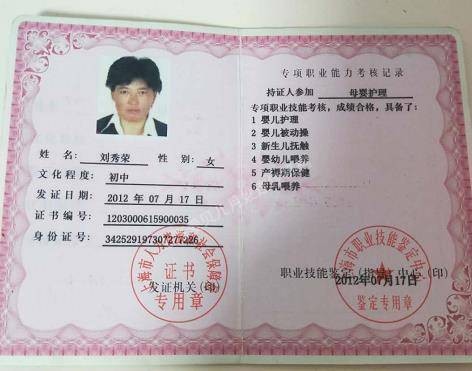 姓 名: 刘秀荣 性 别: 女
文化程度: 初中
发证日期: 2012 年 07 月 17 日
证书编号: 1203000615900035
身份证号: 342529197307277226
上海市人力资源和社会保障局
证书
发证机关(印)
专用章
专项职业能力考核记录
持证人参加 母婴护理
专项职业技能考核，成绩合格，具备了:
1 婴儿护理
2 婴儿被动操
3 新生儿抚触
4 婴幼儿喂养
5 产褥期保健
6 母乳喂养
上海市职业技能鉴定中心
职业技能鉴定(指导)中心(印)
2012年07月17日
鉴定专用章